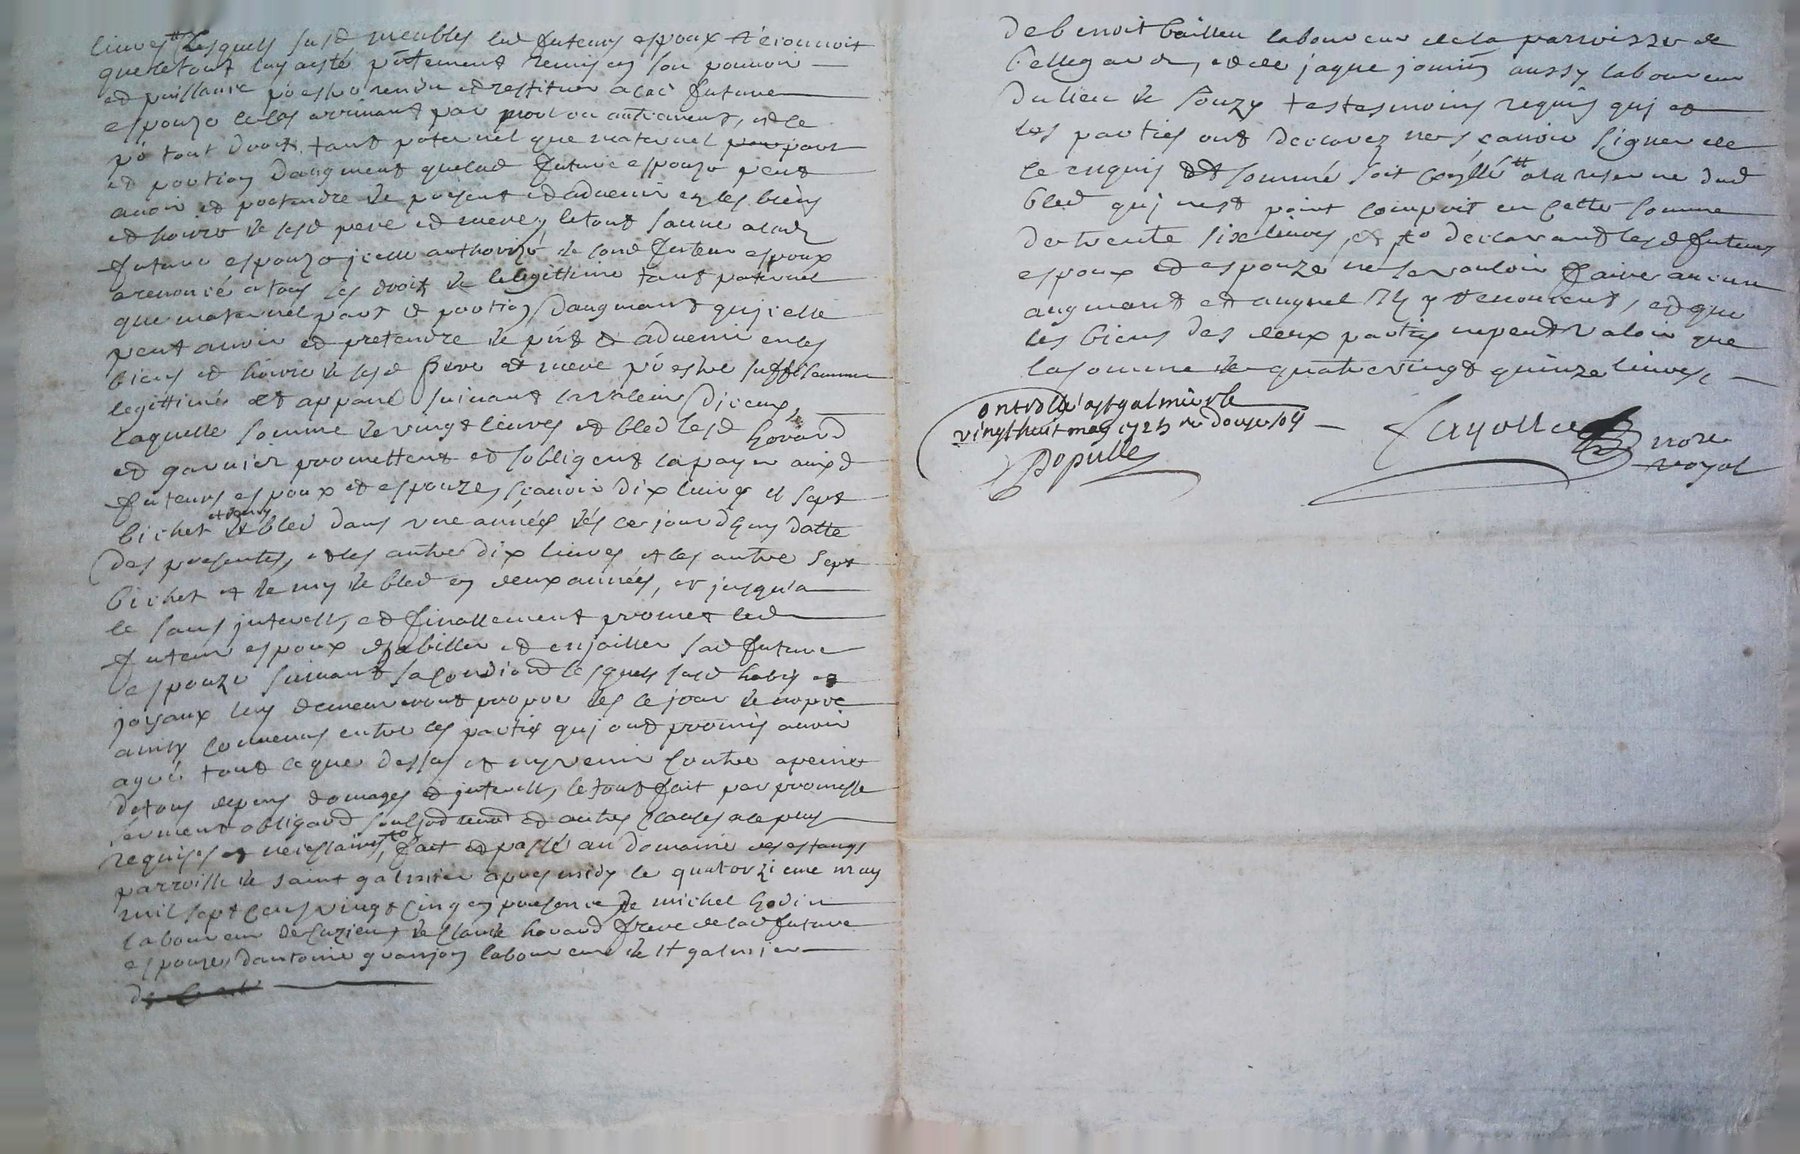 livres lesquels susd meubles led futeurs espoux reconnoit
que le tout luy a esté pñtement remis en son pouvoir
et puissance po estre rendu et restituer a lad future
espouze le cas arrivant par mort ou autrement, et de
po tout droit tant paternel que maternel part
et portion daugment que lad future espouze peut
avoir et pretendre de present et advenir en les biens
et hoirs de sesd pere et mere, le tout lad
future espouze icelle authorizé de sond futeur espoux
a renoncé a tous les droit de legittime tant paternel
que maternel part et portion daugmant qu icelle
peut avoir et pretendre de pñt et advenir en les
biens et hoirs de sesd pere et mere po estre suffisamment
legittimé et appané suivant la valeur diceux
laquelle somme de vingt livres et bled lesd hovard
et garnier promettent et sobligent la payer auxd
futeurs espoux et espouze, sçavoir dix livres et sept
bichet et demy de bled dans une année dés ce jourdhuy datte
des presentes, et les autre dix livres et les autre sept
bichet et demy de bled en deux années, et jusqua
ce sans interests, et finallement promet led
futeur espoux dhabiller et enjailler sad future
espouze suivant sa condiond lesquels susd habis et
joyaux luy demeureront propre des le jour de nopce
ainsy convenus entre les partis qui ont promis avoir
agreé tout ce que dessus et ny venir contre a peine
de tous depens domages et interests, le tout fait par promesse
serment obligaond et autres clauses a ce plus
requises et necessaires, fait et passé au domaine des estangs
parroisse de saint galmier apres midy le quatorzieme may
mil sept cens vingt cinq en presence de michel
laboureur de cuzieu, de claude hovard frere de lad future
espouze, dantoine granjon laboureur de st galmier
de benoit bailleu laboureur de la parroisse de
bellegarde, et de jaque jomin aussy laboureur
du lieu de souzy testesmoins requis qui et
les parties ont declarez ne sçavoir signer de
ce enquis et sommé soit a la reserve dud
bled qui nest point compris en cette somme
de trente six livres, et declarant lesd futeurs
espoux et espouze ne se vouloir faire aucun
augmant et auquel ils y renoncent, et que
les biens des deux parties ne peut valoir que
la somme de quatre vingt quinze livres
ontrollé a st galmier le
vingt huit may 1725 re douze sols
Populle
Fayolle nore
royal